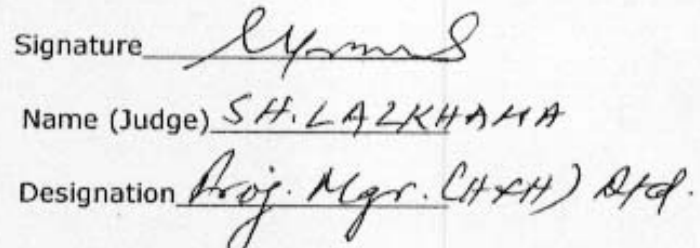 Signature
Name (Judge) SH. LALKHAMA
Designation Proj. Mgr. (H&H)